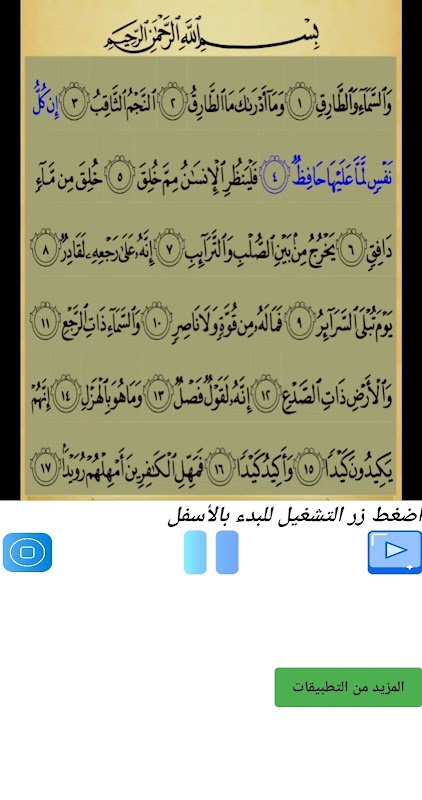 بِسْمِ اللَّهِ الرَّحْمَٰنِ الرَّحِيمِ
وَالسَّمَاءِ وَالطَّارِقِ ١ وَمَا أَدْرَىٰكَ مَا الطَّارِقُ ٢ النَّجْمُ الثَّاقِبُ ٣ إِن كُلُّ
نَفْسٍ لَّمَّا عَلَيْهَا حَافِظٌ ٤ فَلْيَنظُرِ الْإِنسَٰنُ مِمَّ خُلِقَ ٥ خُلِقَ مِن مَّاءٍ
دَافِقٍ ٦ يَخْرُجُ مِنۢ بَيْنِ الصُّلْبِ وَالتَّرَائِبِ ٧ إِنَّهُۥ عَلَىٰ رَجْعِهِۦ لَقَادِرٌ ٨
يَوْمَ تُبْلَى السَّرَائِرُ ٩ فَمَا لَهُۥ مِن قُوَّةٍ وَلَا نَاصِرٍ ١٠ وَالسَّمَاءِ ذَاتِ الرَّجْعِ ١١
وَالْأَرْضِ ذَاتِ الصَّدْعِ ١٢ إِنَّهُۥ لَقَوْلٌ فَصْلٌ ١٣ وَمَا هُوَ بِالْهَزْلِ ١٤ إِنَّهُمْ
يَكِيدُونَ كَيْدًا ١٥ وَأَكِيدُ كَيْدًا ١٦ فَمَهِّلِ الْكَٰفِرِينَ أَمْهِلْهُمْ رُوَيْدًۢا ١٧
اضغط زر التشغيل للبدء بالأسفل
المزيد من التطبيقات